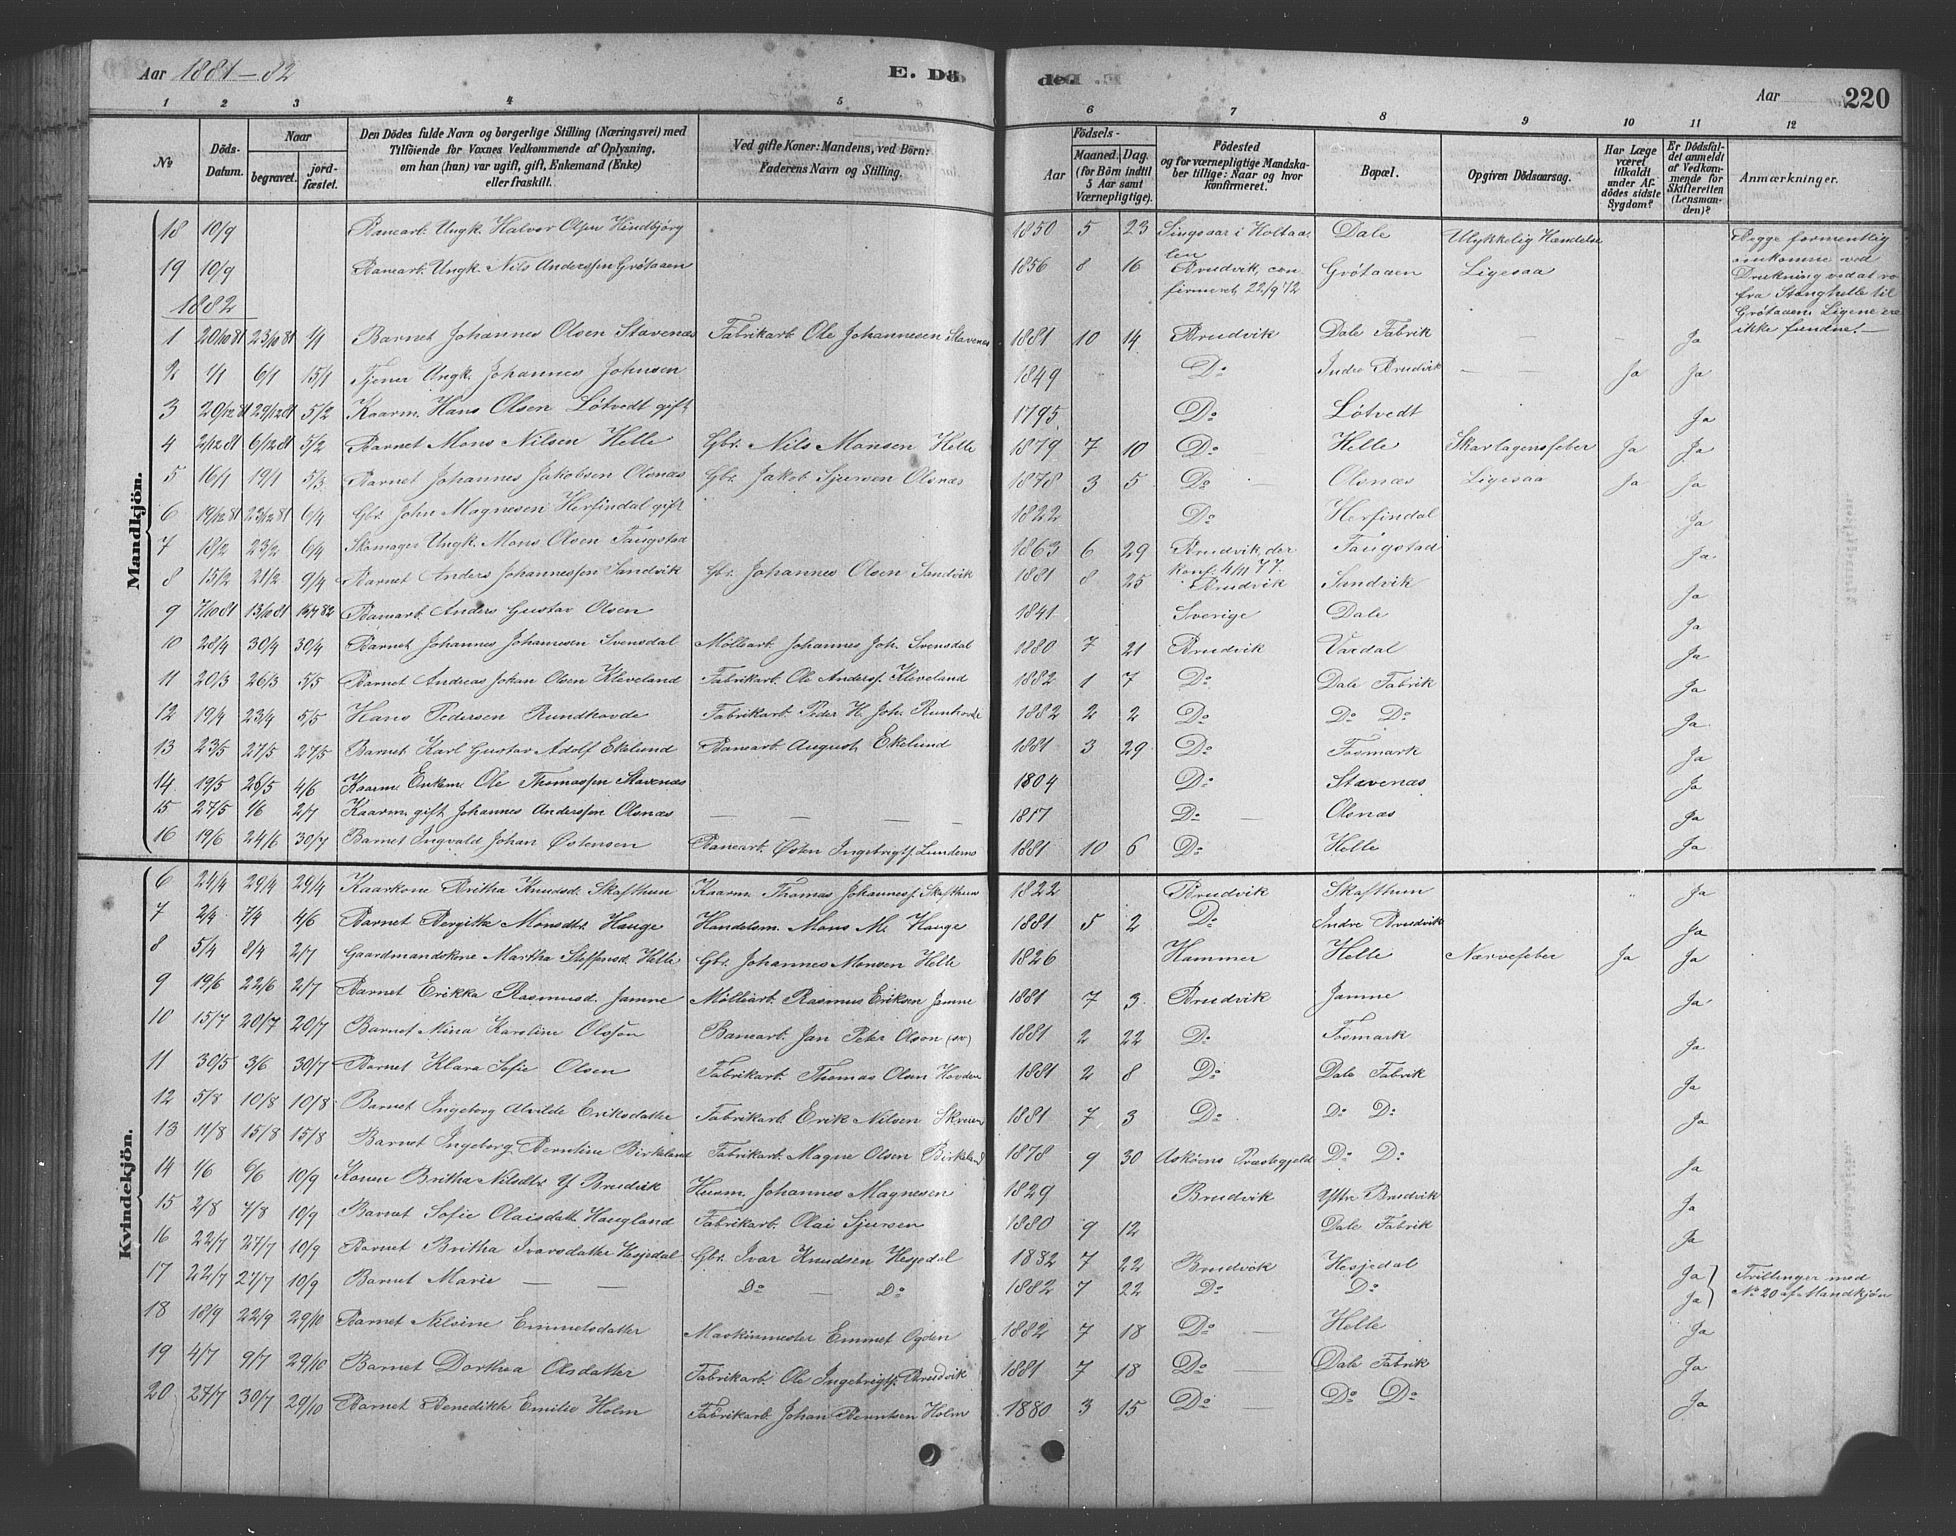 Aar 1881-82 E. Dö de. Aar 220
1 2 3 4 5 6 7 8 9 10 11 12
No Döds-Datum. Naar begravet. jord-fæstet. Den Dödes fulde Navn og borgerlige Stilling (Næringsvei) med Tilföiende for Voxnes Vedkommende af Oplysning, om han (hun) var ugift, gift, Enkemand (Enke) eller fraskilt. Ved gifte Koner: Mandens, ved Börn: Faderens Navn og Stilling. Födsels- Aar Maaned. Dag. (for Börn indtil 5 Aar samt Værnepligtige). Födested og for værnepligtige Mandskaber tillige: Naar og hvor konfirmeret. Bopæl. Opgiven Dödsaarsag. Har Læge været tilkaldt under Afdödes sidste Sygdom? Er Dödsfaldet anmeldt af Vedkommende for Skifteretten (Lensmanden)? Anmærkninger.
Mandkjön.
18 10/9 Banearb. Ungk. Halvor Olsen Hindbjörg 1850 5 23 Singsaas i Holtaalen Dale Ulykkelig Hændelse Begge formentlig omkomne ved Drukning ved at ro fra Stanghelle til Grötaaen, Ligene er ikke fundne!
19 10/9 Banearb. Ungk. Nils Anderssen Grötaaen 1856 8 16 Brudvik, confirmeret 22/9 72 Grötaaen Ligesaa
1882
1 20/10 81 23/10 81 1/1 Barnet Johannes Olsen Stavenæs Fabrikarb. Ole Johannesen Stavenæs 1881 10 14 Brudvik Dale Fabrik — — Ja
2 1/1 6/1 15/1 Tjener Ungk. Johannes Johnsen 1849 Do Indre Brudvik — — Ja Ja
3 20/12 81 29/12 81 5/2 Kaarm. Hans Olsen Lötvedt gift 1795 Do Lötvedt Ja
4 2/12 81 6/12 81 5/2 Barnet Mons Nilsen Helle Gbr. Nils Monsen Helle 1879 7 10 Do Helle Skarlagensfeber Ja Ja
5 16/1 19/1 5/3 Barnet Johannes Jakobsen Olsnæs Gbr. Jakob Sjursen Olsnæs 1878 3 5 Do Olsnæs Ligesaa Ja Ja
6 19/12 81 23/12 81 6/4 Gbr. John Magnesen Herfindal gift 1822 Do Herfindal Ja
7 18/2 23/2 6/4 Skomager Ungk. Mons Olsen Taugstad 1863 6 29 Brudvik, der konf. 4/11 77. Taugstad Ja
8 15/2 21/2 9/4 Barnet Anders Johannessen Sandvik Gbr. Johannes Olsen Sandvik 1881 8 25 Brudvik Sandvik Ja
9 7/10 81 13/10 81 15/4 82 Banearb. Anders Gustav Olsen 1841 Sverige Dale Ja
10 28/4 30/4 30/4 Barnet Johannes Johannesen Svensdal Möllearb. Johannes Joh. Svensdal 1880 7 21 Brudvik Vardal Ja
11 20/3 26/3 5/5 Barnet Andreas Johan Olsen Kleveland Fabrikarb. Ole Anderss. Kleveland 1882 1 7 Do Dale Fabrik Ja
12 19/4 23/4 5/5 Hans Pedersen Rundhovde Fabrikarb. Peder H. Joh. Runhovde 1882 2 2 Do Do Do Ja
13 23/5 27/5 27/5 Barnet Karl Gustav Adolf Ekelund Banearb. August Ekelund 1881 3 29 Do Fosmark Ja
14 19/5 26/5 4/6 Kaarm. Enkem. Ole Thomassen Stavenæs 1804 Do Stavenæs Ja
15 27/5 1/6 2/7 Kaarm. gift Johannes Anderssen Olsnæs — — — — 1817 Do Olsnæs Ja
16 19/6 24/6 30/7 Barnet Ingvald Johan Östensen Banearb. Östen Ingebrigts. Lundems 1881 10 6 Do Helle Ja
Kvindekjön.
6 24/4 29/4 29/4 Kaarkone Britha Knudsd. Skafthun Kaarm. Thomas Johanness. Skafthun 1822 Brudvik Skafthun Ja
7 2/4 7/4 4/6 Barnet Bergitha Monsdtr. Hauge Handelsm. Mons M. Hauge 1881 5 2 Do Indre Brudvik Ja
8 5/4 8/4 2/7 Gaardmandskone Martha Steffensd. Helle Gbr. Johannes Monsen Helle 1826 Hammer Helle Nærvefeber Ja Ja
9 19/6 22/6 2/7 Barnet Erikka Rasmusd. Jamne Möllearb. Rasmus Eriksen Jamne 1881 7 3 Brudvik Jamne Ja
10 15/7 20/7 20/7 Barnet Nina Karoline Olsson Banearb. Jan Peter Olson (sv) 1881 2 22 Do Fosmark Ja
11 30/5 3/6 30/7 Barnet Klara Sofie Olsen Fabrikarb. Thomas Olsen Hovden 1881 2 8 Do Dale Fabrik Ja
12 5/8 10/8 10/8 Barnet Ingeborg Alvilde Eriksdatter Fabrikarb. Erik Nilsen Skreien 1881 7 3 Do Do Do Ja
13 11/8 15/8 15/8 Barnet Ingeborg Berntine Birkeland Fabrikarb. Magne Olsen Birkeland 1878 9 30 Askóens Præstegjeld Do Do Ja
14 1/6 6/6 10/9 Konen Britha Nilsdtr. Y. Brudvik Husm. Johannes Magnesen 1829 Brudvik Ytre Brudvik Ja
15 2/8 7/8 10/9 Barnet Sofie Olaisdatter Haugland Fabrikarb. Olai Sjursen 1880 9 12 Dale Fabrik Ja
16 22/7 27/7 10/9 Barnet Britha Ivarsdatter Hesjedal Gbr. Ivar Knudsen Hesjedal 1882 7 22 Brudvik Hesjedal Ja Trillinger med No 20 af Mandkjön
17 22/7 27/7 10/9 Barnet Marie — — Do — Do 1882 7 22 Do Do Ja
18 18/9 22/9 29/10 Barnet Nilsine Emmetsdatter Maskinmester Emmet Ogden 1882 7 18 Do Helle Ja
19 4/7 9/7 29/10 Barnet Dorthea Olsdatter Fabrikarb. Ole Ingebrigts. Brudvik 1881 7 18 Do Dale Fabrik Ja
20 27/7 30/7 29/10 Barnet Benedikte Emilie Holm Fabrikarb. Johan Berntsen Holm 1880 3 15 Do Do Do Ja